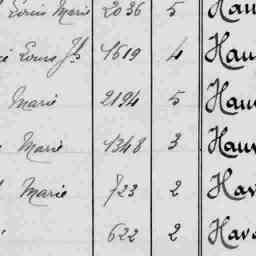 Louis Marie 2036 5 Hau
Louis Jh 1619 4 Hau
Marie 2194 5 Hau
Marie 1348 3 Hau
Marie 723 2 Hav
622 2 Hav